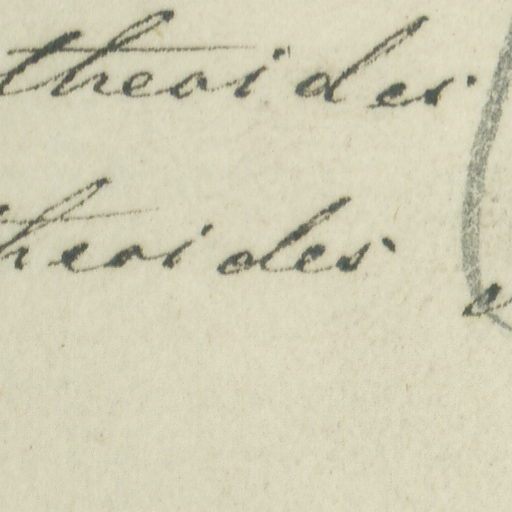 theoides
heoides